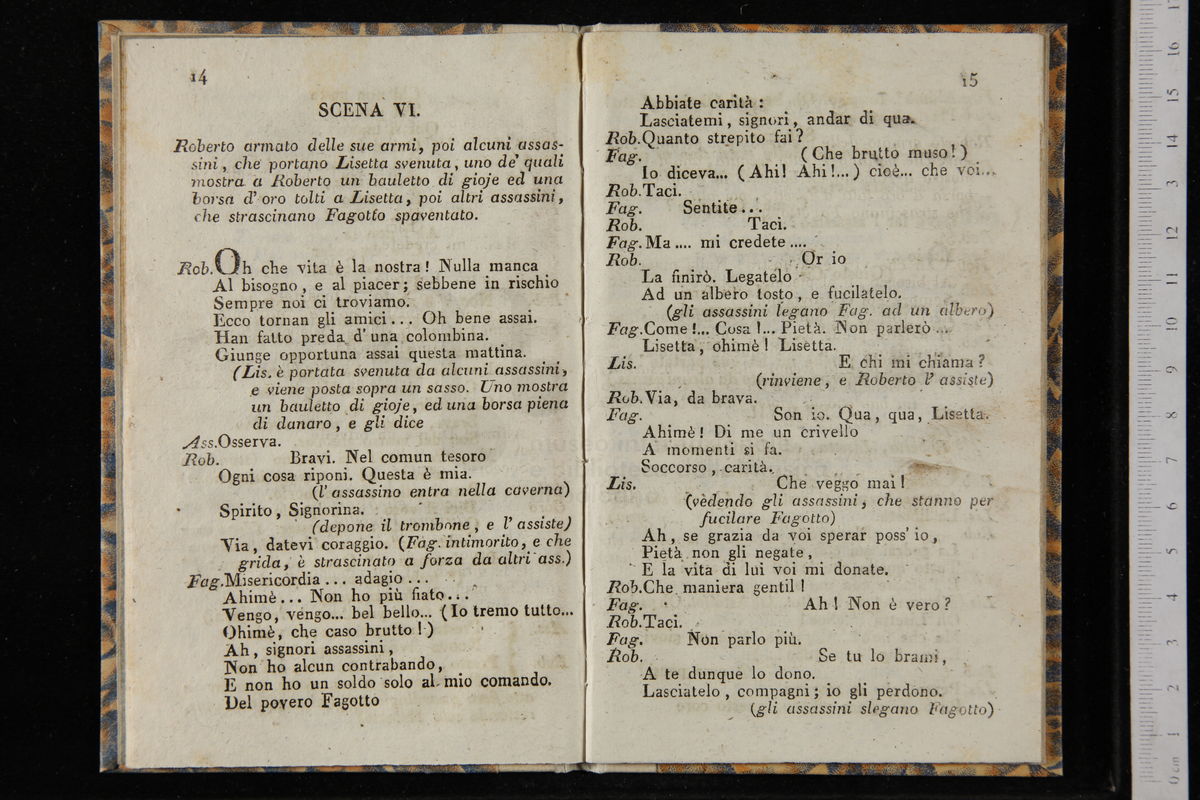 14
SCENA VI.
Roberto armato delle sue armi, poi alcuni assas-
sini, che portano Lisetta svenuta, uno de' quali
mostra a Roberto un bauletto di gioje ed una
borsa d'oro tolti a Lisetta, poi altri assassini,
che strascinano Fagotto spaventato.
Rob. Oh che vita è la nostra! Nulla manca
Al bisogno, e al piacer; sebbene in rischio
Sempre noi ci troviamo.
Ecco tornan gli amici... Oh bene assai.
Han fatto preda d'una colombina.
Giunge opportuna assai questa mattina.
(Lis. è portata svenuta da alcuni assassini,
e viene posta sopra un sasso. Uno mostra
un bauletto di gioje, ed una borsa piena
di danaro, e gli dice
Ass. Osserva.
Rob. Bravi. Nel comun tesoro
Ogni cosa riponi. Questa è mia.
(l'assassino entra nella caverna)
Spirito, Signorina.
(depone il trombone, e l'assiste)
Via, datevi coraggio. (Fag. intimorito, e che
grida, è strascinato a forza da altri ass.)
Fag. Misericordia... adagio...
Ahimè... Non ho più fiato...
Vengo, vengo... bel bello... (Io tremo tutto...
Ohimè, che caso brutto!)
Ah, signori assassini,
Non ho alcun contrabando,
E non ho un soldo solo al mio comando.
Del povero Fagotto
15
Abbiate carità:
Lasciatemi, signori, andar di qua.
Rob. Quanto strepito fai?
Fag. (Che brutto muso!)
Io diceva... (Ahi! Ahi!...) cioè... che voi...
Rob. Taci.
Fag. Sentite...
Rob. Taci.
Fag. Ma.... mi credete....
Rob. Or io
La finirò. Legatelo
Ad un albero tosto, e fucilatelo.
(gli assassini legano Fag. ad un albero)
Fag. Come!... Cosa!... Pietà. Non parlerò...
Lisetta, ohimè! Lisetta.
Lis. E chi mi chiama?
(rinviene, e Roberto l'assiste)
Rob. Via, da brava.
Fag. Son io. Qua, qua, Lisetta.
Ahimè! Di me un crivello
A momenti si fa.
Soccorso, carità.
Lis. Che veggo mai!
(vedendo gli assassini, che stanno per
fucilare Fagotto)
Ah, se grazia da voi sperar poss'io,
Pietà non gli negate,
E la vita di lui voi mi donate.
Rob. Che maniera gentil!
Fag. Ah! Non è vero?
Rob. Taci.
Fag. Non parlo più.
Rob. Se tu lo brami,
A te dunque lo dono.
Lasciatelo, compagni; io gli perdono.
(gli assassini slegano Fagotto)
0 cm 1 2 3 4 5 6 7 8 9 10 11 12 13 14 15 16